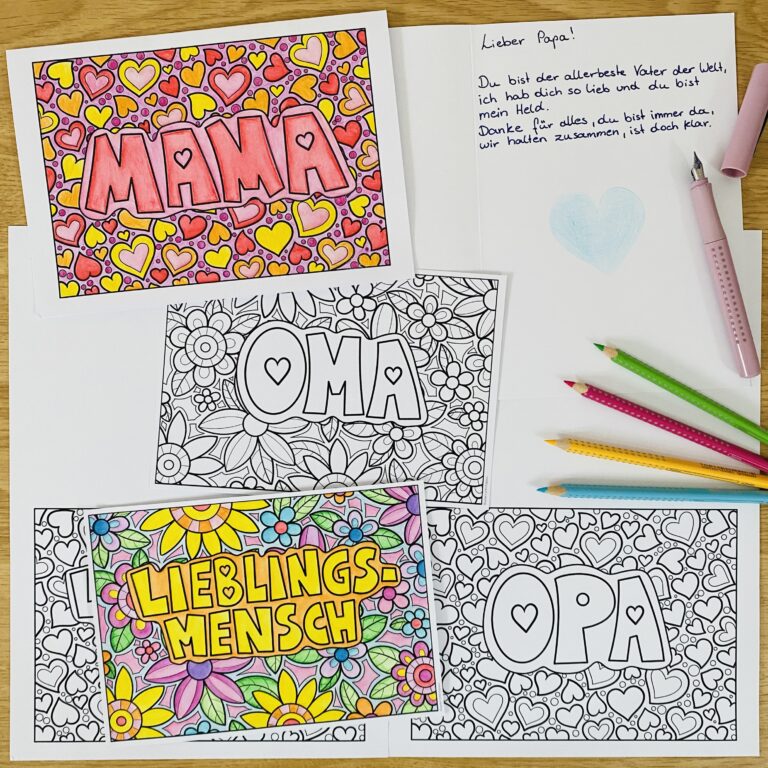 MAMA
Lieber Papa!
Du bist der allerbeste Vater der Welt,
ich hab dich so lieb und du bist
mein Held.
Danke für alles, du bist immer da,
wir halten zusammen, ist doch klar.
OMA
LIEBLINGS-
MENSCH
OPA